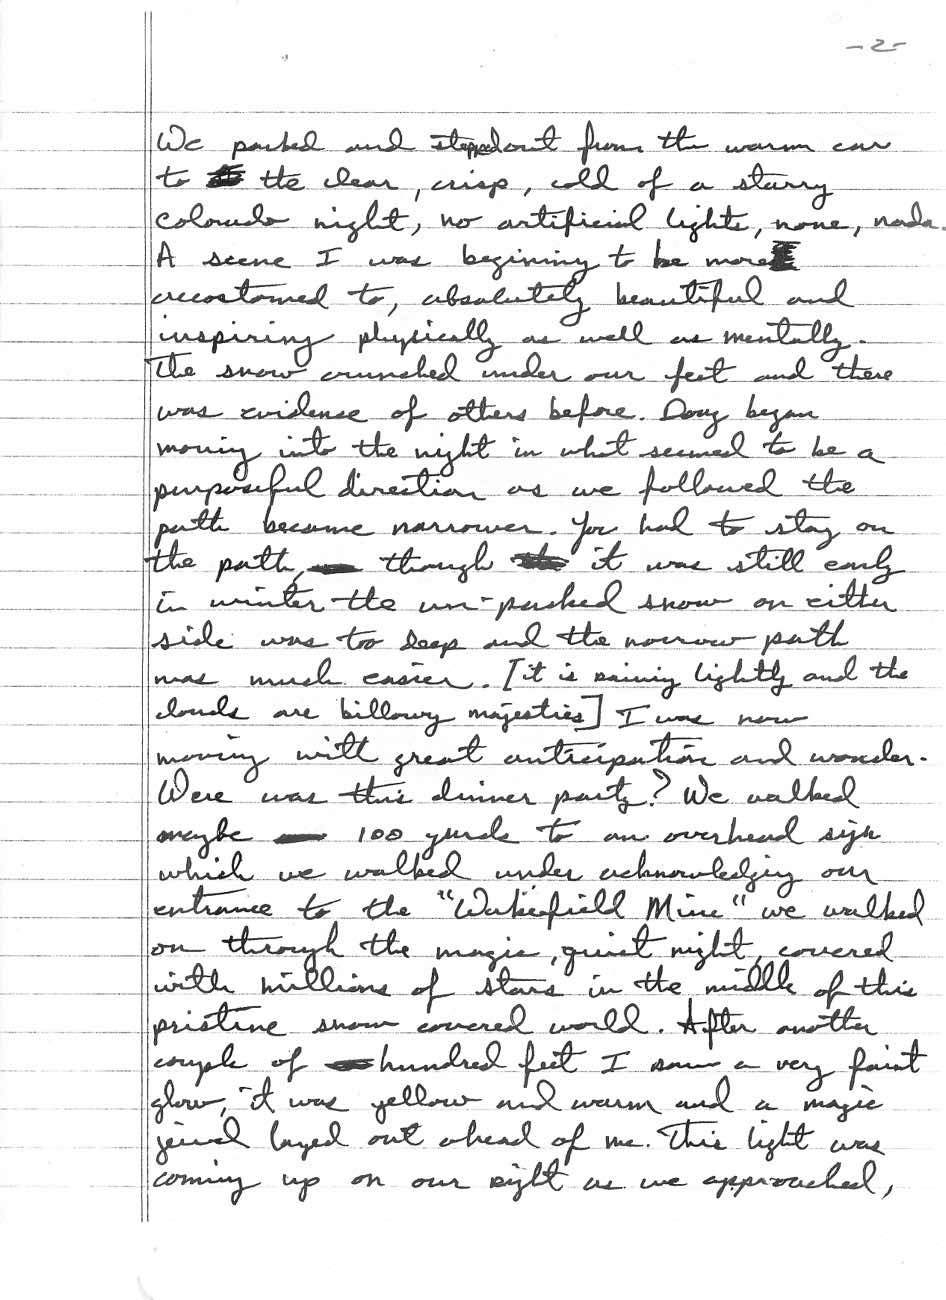 -2-
We parked and stepped out from the warm car
to the clear, crisp, cold of a starry
Colorado night, no artificial lights, none, nada.
A scene I was begining to be more
accostomed to, absolutely beautiful and
inspiring physically as well as mentally.
The snow crunched under our feet and there
was evidence of others before. Doug began
moving into the night in what seemed to be a
purposeful direction as we followed the
path became narrower. You had to stay on
the path, though it was still early
in winter the un-packed snow on either
side was too deep and the narrow path
was much easier. [it is raining lightly and the
clouds are billowy majesties] I was now
moving with great anticipation and wonder.
Were was this dinner party? We walked
maybe 100 yards to an overhead sign
which we walked under acknowledging our
entrance to the "Wakefield Mine" we walked
on through the magic, quiet night, covered
with millions of stars in the middle of this
pristine snow covered world. After another
couple of hundred feet I saw a very faint
glow, it was yellow and warm and a magic
jewel layed out ahead of me. This light was
coming up on our right as we approached,